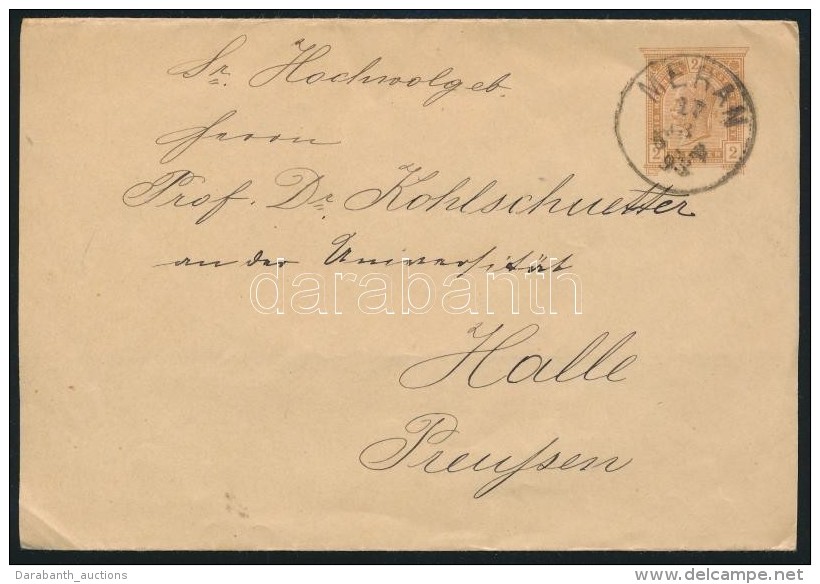 Sr. Hochwolgeb.
Herrn
Prof. Dr. Kohlschuetter
an der Universität
Halle
Preußen
2
2 2
MERAN
27
93
darabanth
Darabanth_auctions
www.delcampe.net